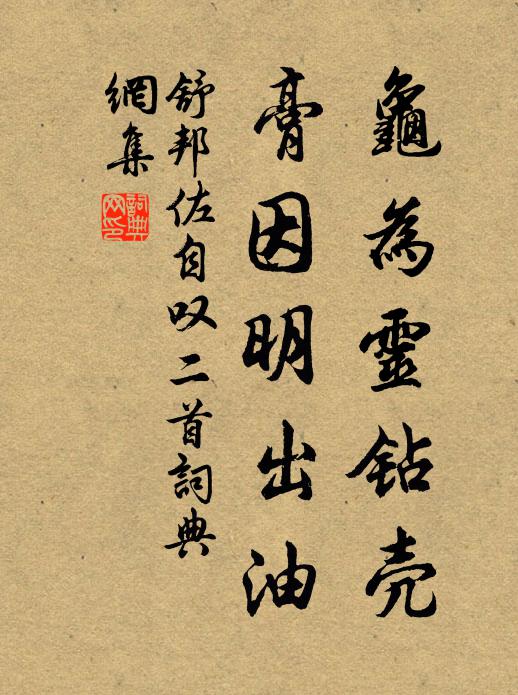 龜為靈钻壳
膏因明出油
舒邦佐自叹二首詞典
網集
詞典
网印